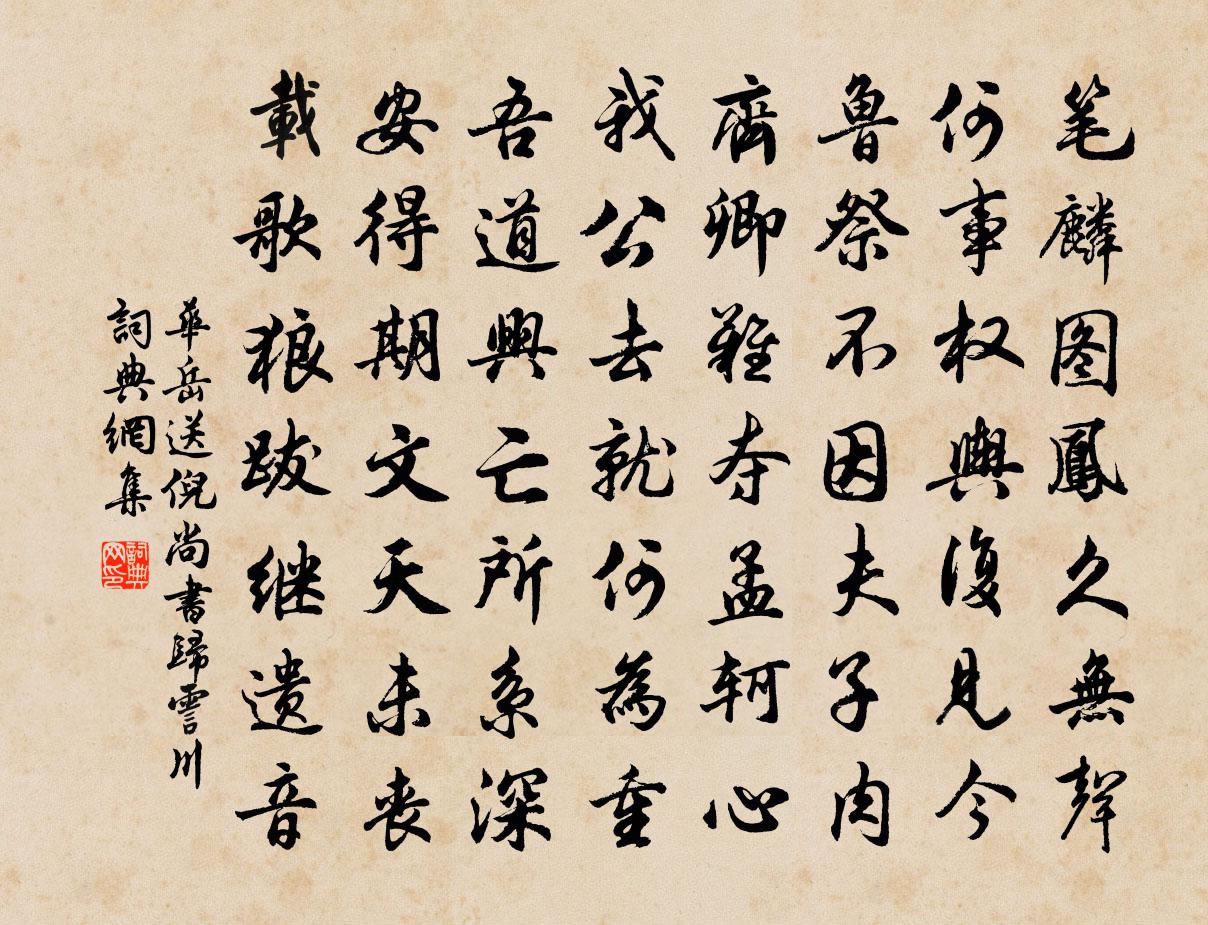 笔麟图鳳久無聲
何事权輿復见今
鲁祭不因夫子肉
齊卿難夺孟轲心
我公去就何為重
吾道興亡所系深
安得期文天未丧
載歌狼跋继遗音
華岳送倪尚書歸霅川
詞典網集
詞典网印